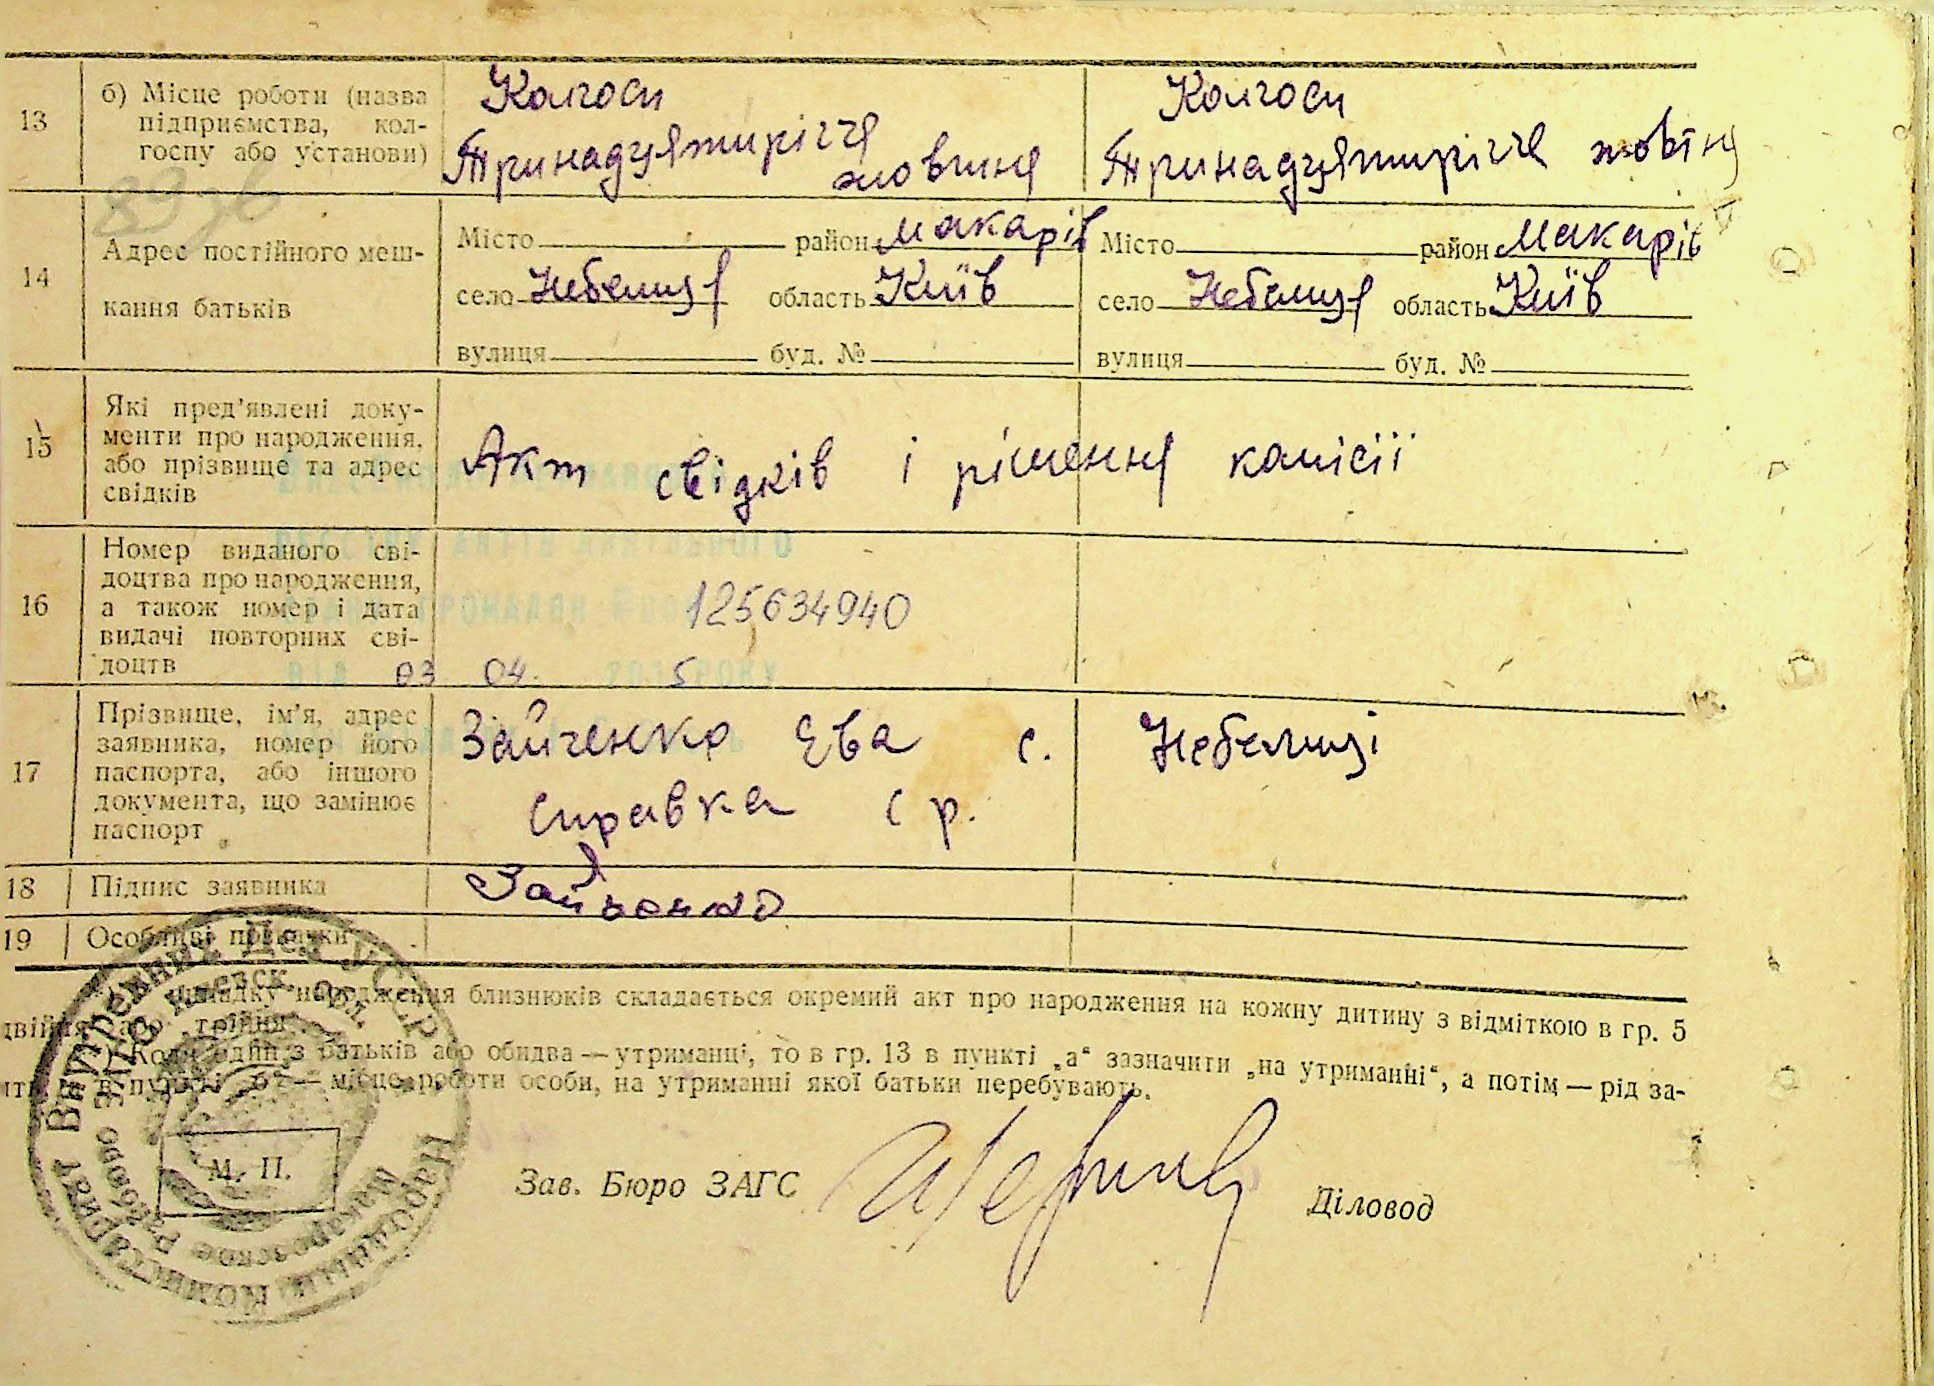 13
б) Місце роботи (назва підприємства, кол-
госпу або установи)
Колгосп
Тринадцятиріччя
жовтня
Колгосп
Тринадцятиріччя жовтня
14
Адрес постійного меш-
кання батьків
Місто район Макарів
село Небелиця область Київ
вулиця буд. №
Місто район Макарів
село Небелиця область Київ
вулиця буд. №
15
Які пред'явлені доку-
менти про народження,
або прізвище та адрес
свідків
Акт свідків і рішення комісії
16
Номер виданого сві-
доцтва про народження,
а також номер і дата
видачі повторних сві-
доцтв
125634940
ВІД 03 04. 2015 РОКУ
17
Прізвище, ім'я, адрес
заявника, номер його
паспорта, або іншого
документа, що замінює
паспорт
Зайченко Ева с. Небелиці
справка с р.
18
Підпис заявника
Зайченко
19
Особливі
народження близнюків складається окремий акт про народження на кожну дитину з відміткою в гр. 5
двійня або трійня
Коли один з батьків або обидва — утриманці, то в гр. 13 в пункті „а“ зазначити „на утриманні“, а потім — рід за-
в пункті „б“ — місце роботи особи, на утриманні якої батьки перебувають.
М. П.
Зав. Бюро ЗАГС
Діловод
Народный Комиссариат Внутренних Дел УССР
Макаровское